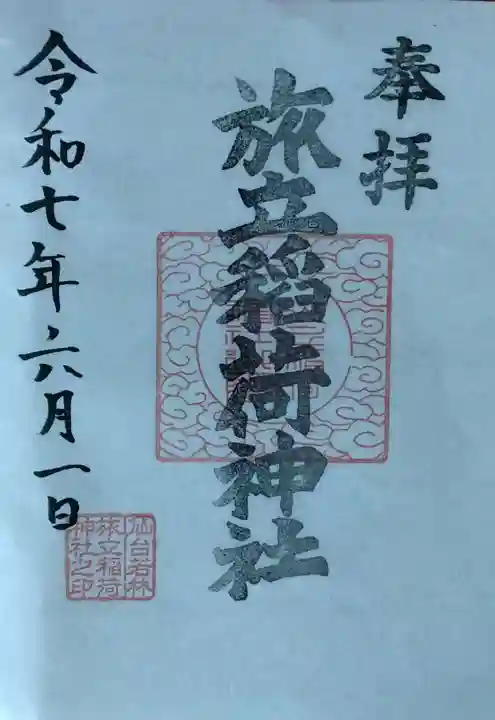 奉拝
旅立稲荷神社
令和七年六月一日
仙台若林
旅立稲荷
神社之印